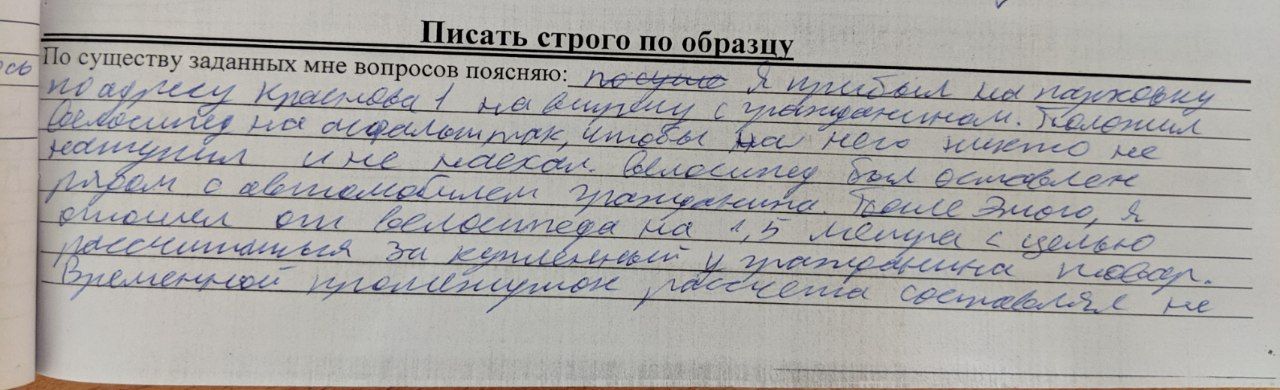 Писать строго по образцу
ось
По существу заданных мне вопросов поясняю: Я прибыл на парковку
по адресу Краснова 1 на встречу с гражданином. Положил
велосипед на асфальт так, чтобы на него никто не
наступил и не наехал. Велосипед был оставлен
рядом с автомобилем гражданина. После этого, я
отошел от велосипеда на 1,5 метра с целью
рассчитаться за купленный у гражданина товар.
Временной промежуток рассчета составлял не